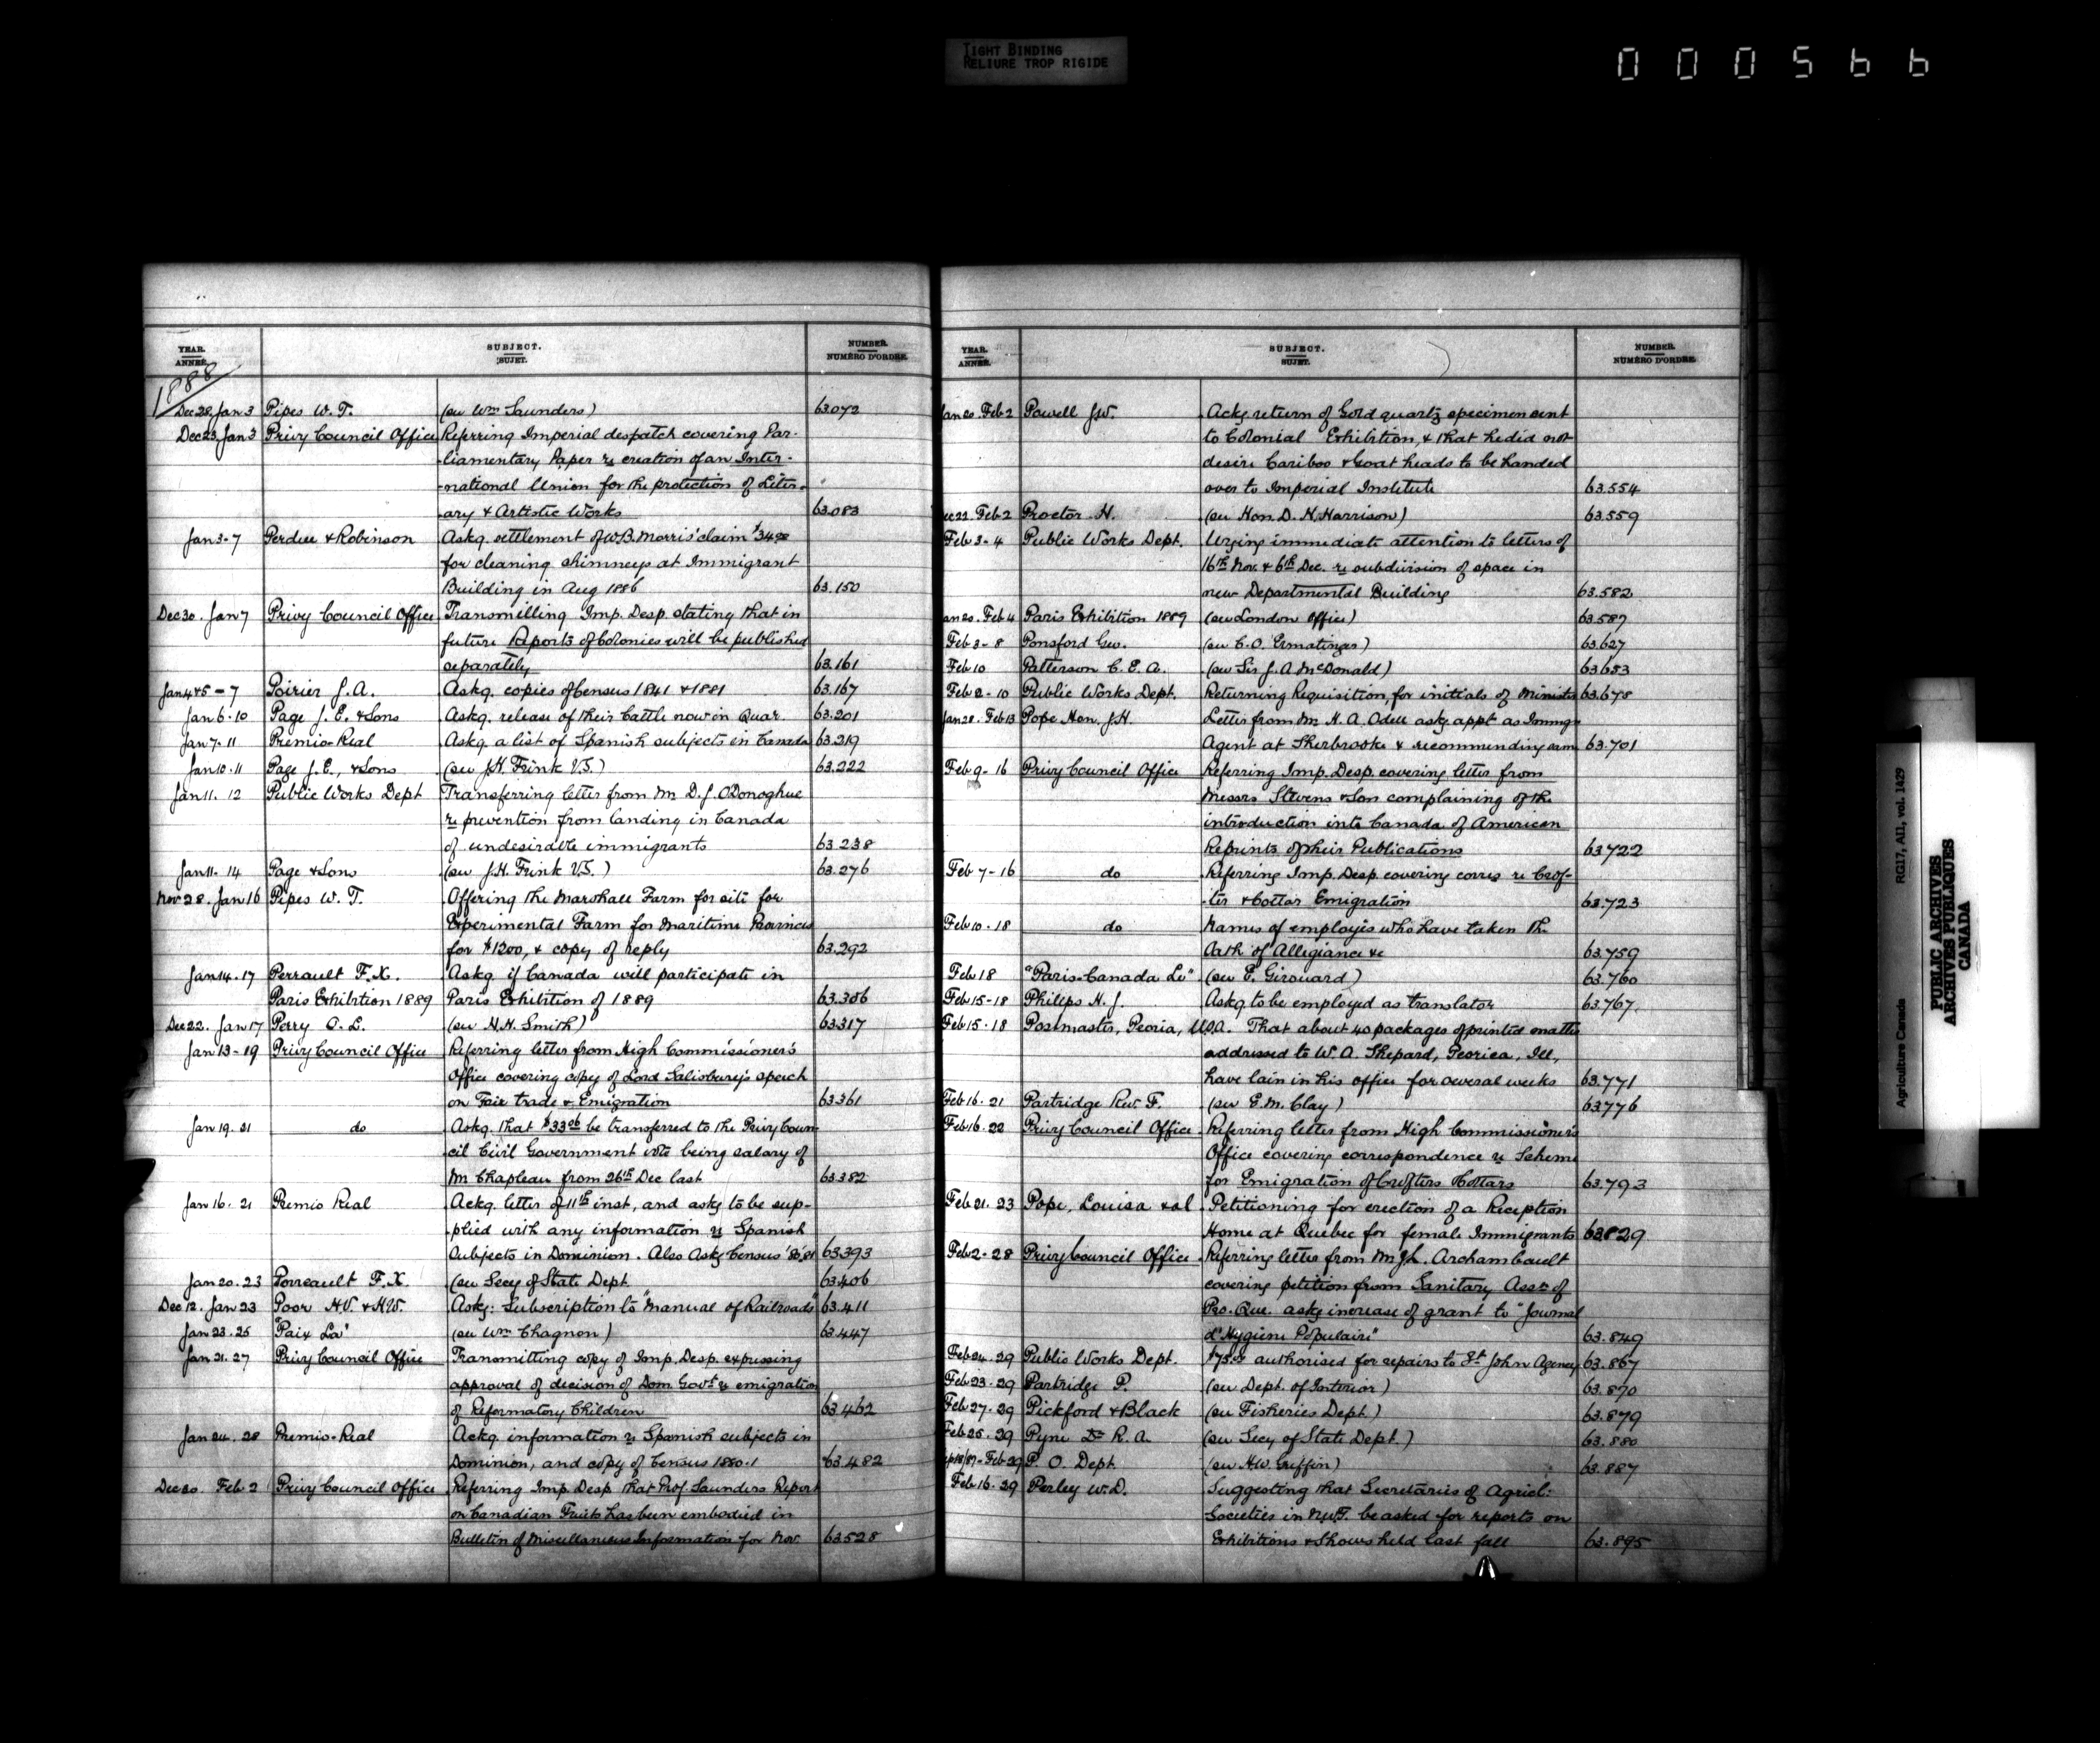 TIGHT BINDING
RELIURE TROP RIGIDE
000566
YEAR. ANNÉE. SUBJECT. SUJET. NUMBER. NUMÉRO D'ORDRE.
1888
Dec 28. Jan 3 Pipes W. T. (see Wm Saunders) 63.072
Dec 23. Jan 3 Privy Council Office Referring Imperial despatch covering Par-
-liamentary Paper re creation of an Inter-
-national Union for the protection of Liter-
ary & Artistic Works 63.083
Jan 3-7 Perdue & Robinson Askg. settlement of W.B. Morris' claim $34.00
for cleaning chimneys at Immigrant
Building in Aug 1886 63.150
Dec 30. Jan 7 Privy Council Office Transmitting Imp. Desp. stating that in
future Reports of Colonies will be published
separately 63.161
Jan 4 & 5 - 7 Poirier J. A. Askg. copies of Census 1841 & 1881 63.167
Jan 6-10 Page J. E. & Sons Askg. release of their Cattle now in Quar. 63.201
Jan 7-11 Premio-Real Askg. a list of Spanish subjects in Canada 63.219
Jan 10.11 Page J. E., & Sons (see J.H. Frink V.S.) 63.222
Jan 11. 12 Public Works Dept Transferring letter from Mr D. J. O'Donoghue
re prevention from landing in Canada
of undesirable immigrants 63.238
Jan 11. 14 Page & Sons (see J.H. Frink V.S.) 63.276
Nov 28. Jan 16 Pipes W. T. Offering the Marshall Farm for site for
Experimental Farm for Maritime Provinces
for $1200, & copy of reply 63.292
Jan 14.17 Perrault F. X. Askg. if Canada will participate in
Paris Exhibition 1889 Paris Exhibition of 1889 63.306
Dec 22. Jan 17 Perry O. L. (see H. H. Smith) 63.317
Jan 13-19 Privy Council Office Referring letter from High Commissioner's
Office covering copy of Lord Salisbury's speech
on Fair trade & Emigration 63.361
Jan 19. 21 do Askg. that $33.06 be transferred to the Privy Coun-
cil Civil Government vote being salary of
Mr Chapleau from 26th Dec last 63.382
Jan 16. 21 Premio Real Ackg. letter of 11th inst, and askg to be sup-
-plied with any information re Spanish
Subjects in Dominion. Also Askg Census '80.'81 63.393
Jan 20.23 Perreault F. X. (see Secy of State Dept. 63.406
Dec 12. Jan 23 Poor H.V. & H.W. Askg: Subscription to "Manual of Railroads" 63.411
Jan 23.25 "Paix La" (see Wm Chagnon) 63.447
Jan 21.27 Privy Council Office Transmitting copy of Imp. Desp. expressing
approval of decision of Dom. Govt re emigration
of Reformatory Children 63.462
Jan 24. 28 Premio-Real Ackg. information re Spanish subjects in
Dominion, and copy of Census 1880-1 63.482
Dec 30. Feb 2 Privy Council Office Referring Imp. Desp. that Prof. Saunders Report
on Canadian Fruits has been embodied in
Bulletin of Miscellaneous Information for Nov. 63.528
YEAR. ANNÉE. SUBJECT. SUJET. NUMBER. NUMÉRO D'ORDRE.
Jan 20. Feb 2 Powell J.W. Ackg return of Gold quartz specimen sent
to Colonial Exhibition, & that he did not
desire Cariboo & Goat heads to be handed
over to Imperial Institute 63.554
Dec 22. Feb 2 Proctor H. (see Hon. D. H. Harrison) 63.559
Feb 3-4 Public Works Dept. Urging immediate attention to letters of
16th Nov. & 6th Dec. re subdivision of space in
new Departmental Building 63.582
Jan 20. Feb 4 Paris Exhibition 1889 (see London Office) 63.587
Feb 3-8 Ponsford Geo. (see C.O. Ermatinger) 63.627
Feb 10 Patterson C. E. A. (see Sir J. A. McDonald) 63.653
Feb 2-10 Public Works Dept. Returning Requisition, for initials of Minister 63.678
Jan 28. Feb 13 Pope Hon. J.H. Letter from Mr H. A. Odell askg appt as Immgn
Agent at Sherbrooke & recommending same 63.701
Feb 9-16 Privy Council Office Referring Imp. Desp. covering letter from
Messrs Stevens & Son complaining of the
introduction into Canada of American
Reprints of their Publications 63.722
Feb 7-16 do Referring Imp. Desp. covering corres re Crof-
-ter & Cottar Emigration 63.723
Feb 10-18 do Names of employés who have taken the
Oath of Allegiance &c 63.759
Feb 18 "Paris-Canada Le" (see E. Girouard) 63.760
Feb 15-18 Philips H. J. Askg to be employed as translator 63.767.
Feb 15-18 Postmaster, Peoria, U.S.A. That about 40 packages of printed matter
addressed to W. A. Shepard, Peoria, Ill,
have lain in his office for several weeks 63.771
Feb 16-21 Partridge Rev. F. (see E. M. Clay) 63.776
Feb 16-22 Privy Council Office Referring letter from High Commissioner's
Office covering correspondence re Scheme
for Emigration of Crofters & Cottars 63.793
Feb 21. 23 Pope, Louisa et al Petitioning for erection of a Reception
Home at Quebec for female Immigrants 63.829
Feb 2-28 Privy Council Office Referring letter from Mr J. L. Archambault
covering petition from Sanitary Assn of
Pro. Que. askg increase of grant to "Journal
d'Hygiene Populaire" 63.849
Feb 24.29 Public Works Dept. $75.00 authorised for repairs to St John Agency 63.867
Feb 23-29 Partridge P. (see Dept. of Interior) 63.870
Feb 27-29 Pickford & Black (see Fisheries Dept.) 63.879
Feb 25.29 Pyne Dr R. A. (see Secy of State Dept.) 63.880
Feb 29 P. O. Dept. (see H.W. Griffin) 63.887
Feb 16-29 Perley W. D. Suggesting that Secretaries of Agricl:
Societies in N.W.T. be asked for reports on
Exhibitions & Shows held last fall 63.895
Agriculture Canada RG17, AII, vol. 1429
PUBLIC ARCHIVES
ARCHIVES PUBLIQUES
CANADA